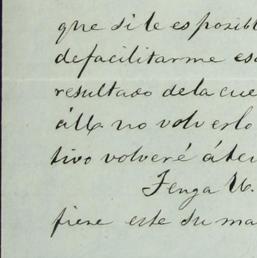 que si le es posibl
de facilitarme es
resultado de la cue
á U. no volverlo
tivo volveré á te
Tenga U.
fiene este su ma